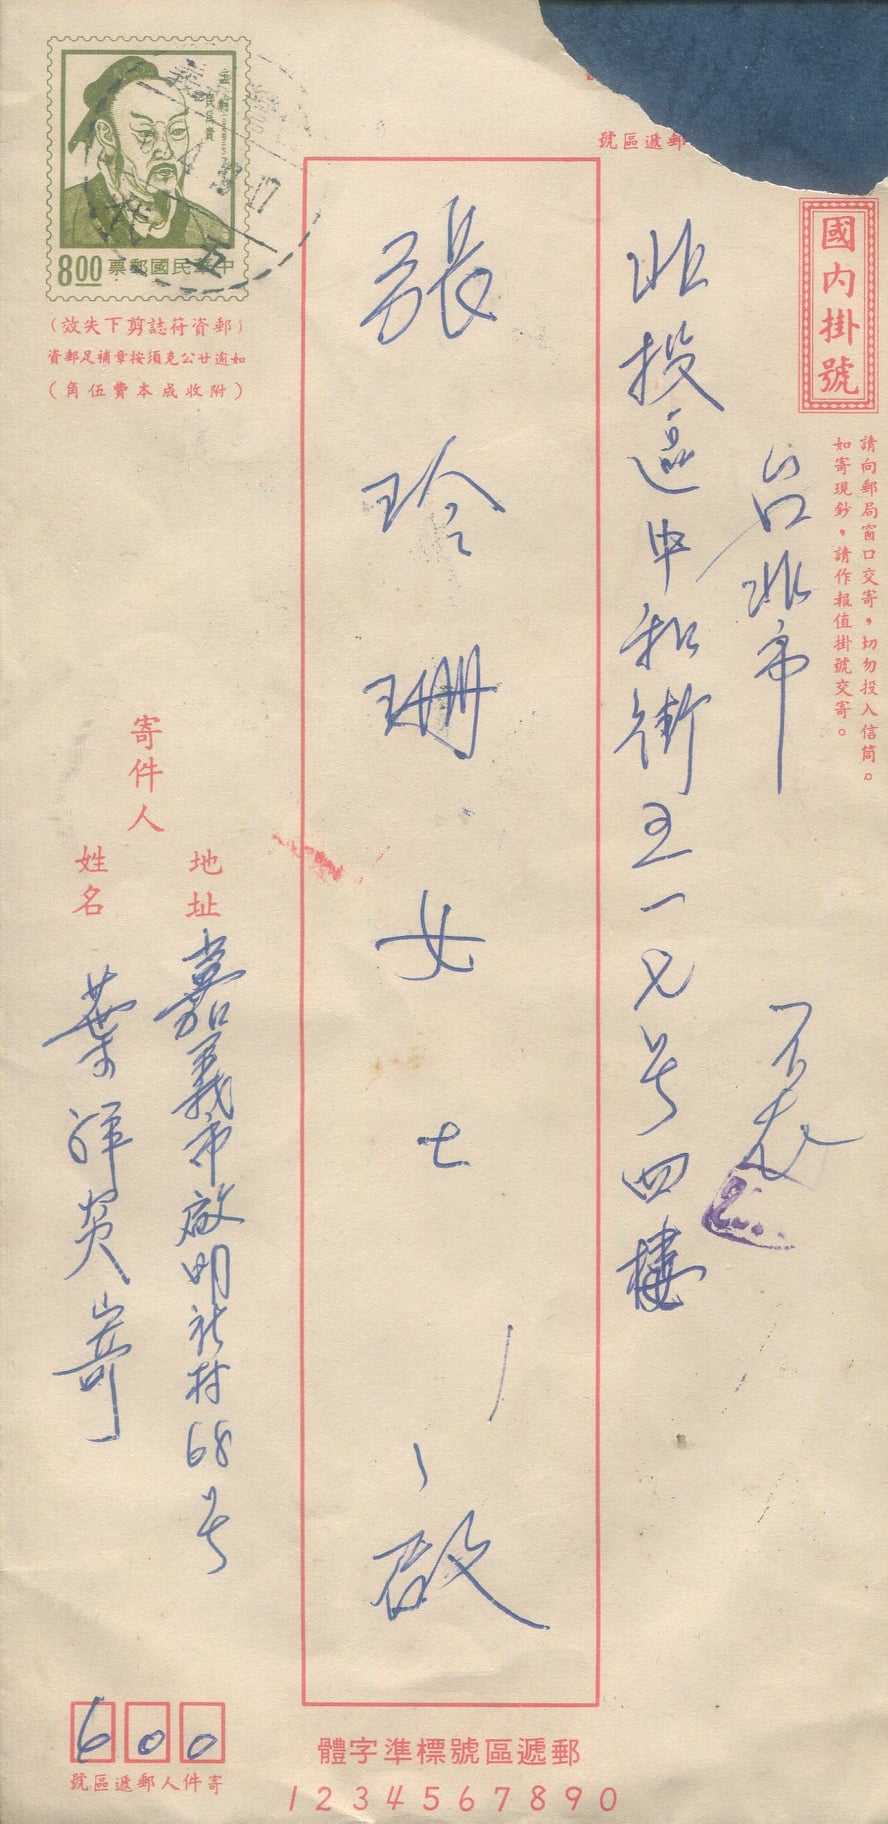 郵遞區號
國內掛號
請向郵局窗口交寄，切勿投入信筒。
如寄現鈔，請作報值掛號交寄。
台北市
北投區中和街五一九号四樓
不在
張玲珊女士
啟
孟軻
中華民國郵票
8.00
（郵資符誌剪下失效）
如逾廿公克須按章補足郵資
（附收成本費伍角）
寄件人
地址
嘉義市啟明社村68号
姓名
600
寄件人郵遞區號
郵遞區號標準字體
1 2 3 4 5 6 7 8 9 0